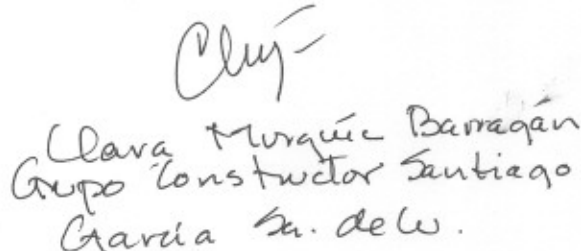 Clara Murguía Barragán
Grupo Constructor Santiago
García Sa. de Cv.